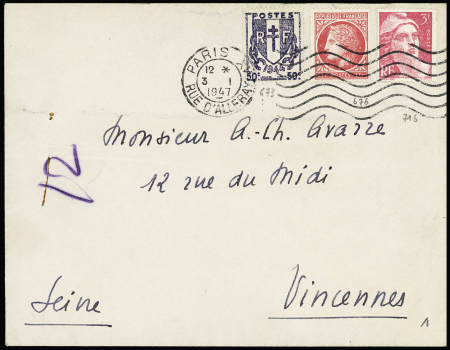 POSTES
RF
1944
50c 50c
REPUBLIQUE FRANÇAISE
3F
RF
PARIS
12 *
3 1
1947
RUE D'ALLERAY
673
676
716
Monsieur A.-Ch. Avazze
12 rue du Midi
12
Seine
Vincennes
1